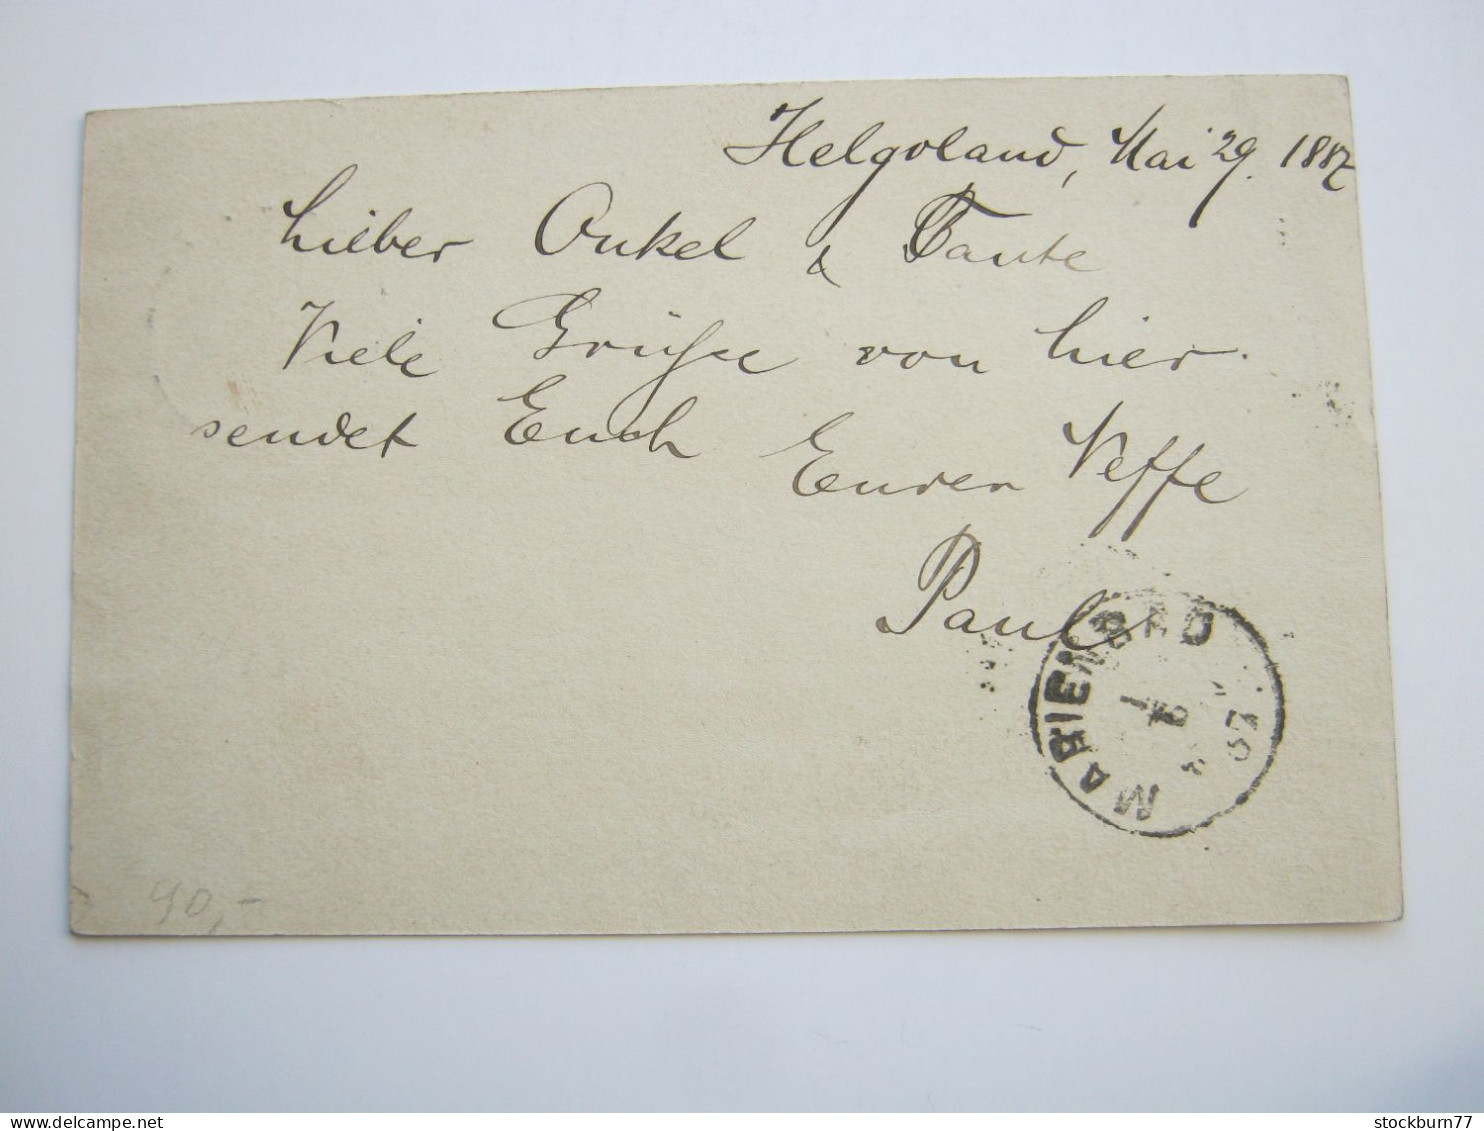 Helgoland, Mai 29. 1887
Lieber Onkel & Tante
Viele Grüße von hier
sendet Euch Euren Neffe
Paul
MARIENBAD
1
6
87
90,-
stockburn77